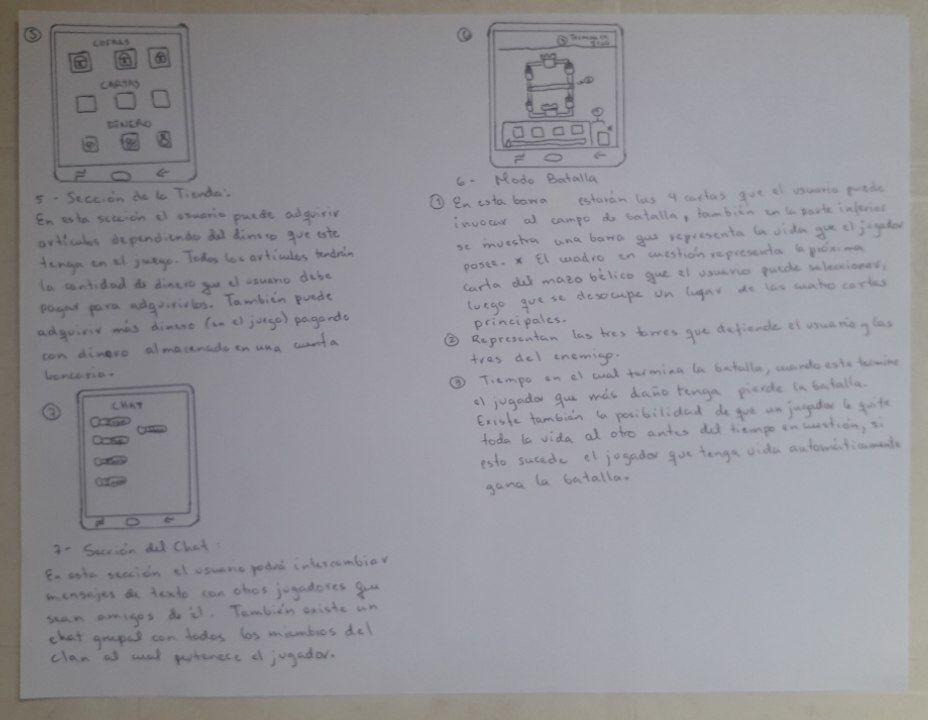 5
COFRES
CARTAS
DINERO
5 - Sección de la Tienda:
En esta sección el usuario puede adquirir
artículos dependiendo del dinero que este
tenga en el juego. Todos los artículos tendrán
la cantidad de dinero que el usuario debe
pagar para adquirirlos. También puede
adquirir más dinero (en el juego) pagando
con dinero almacenado en una cuenta
bancaria.
7
CHAT
7- Sección del Chat:
En esta sección el usuario podrá intercambiar
mensajes de texto con otros jugadores que
sean amigos de él. También existe un
chat grupal con todos los miembros del
clan al cual pertenece el jugador.
6
3 Termina en
2
1
*
6- Modo Batalla
1 En esta barra estarán las 4 cartas que el usuario puede
invocar al campo de batalla, también en la parte inferior
se muestra una barra que representa la vida que el jugador
posee. * El cuadro en cuestión representa la próxima
carta del mazo bélico que el usuario puede seleccionar,
luego que se desocupe un lugar de las cuatro cartas
principales.
2 Representan las tres torres que defiende el usuario y las
tres del enemigo.
3 Tiempo en el cual termina la batalla, cuando este termine
el jugador que más daño tenga pierde la batalla.
Existe también la posibilidad de que un jugador le quite
toda la vida al otro antes del tiempo en cuestión, si
esto sucede el jugador que tenga vida automáticamente
gana la batalla.